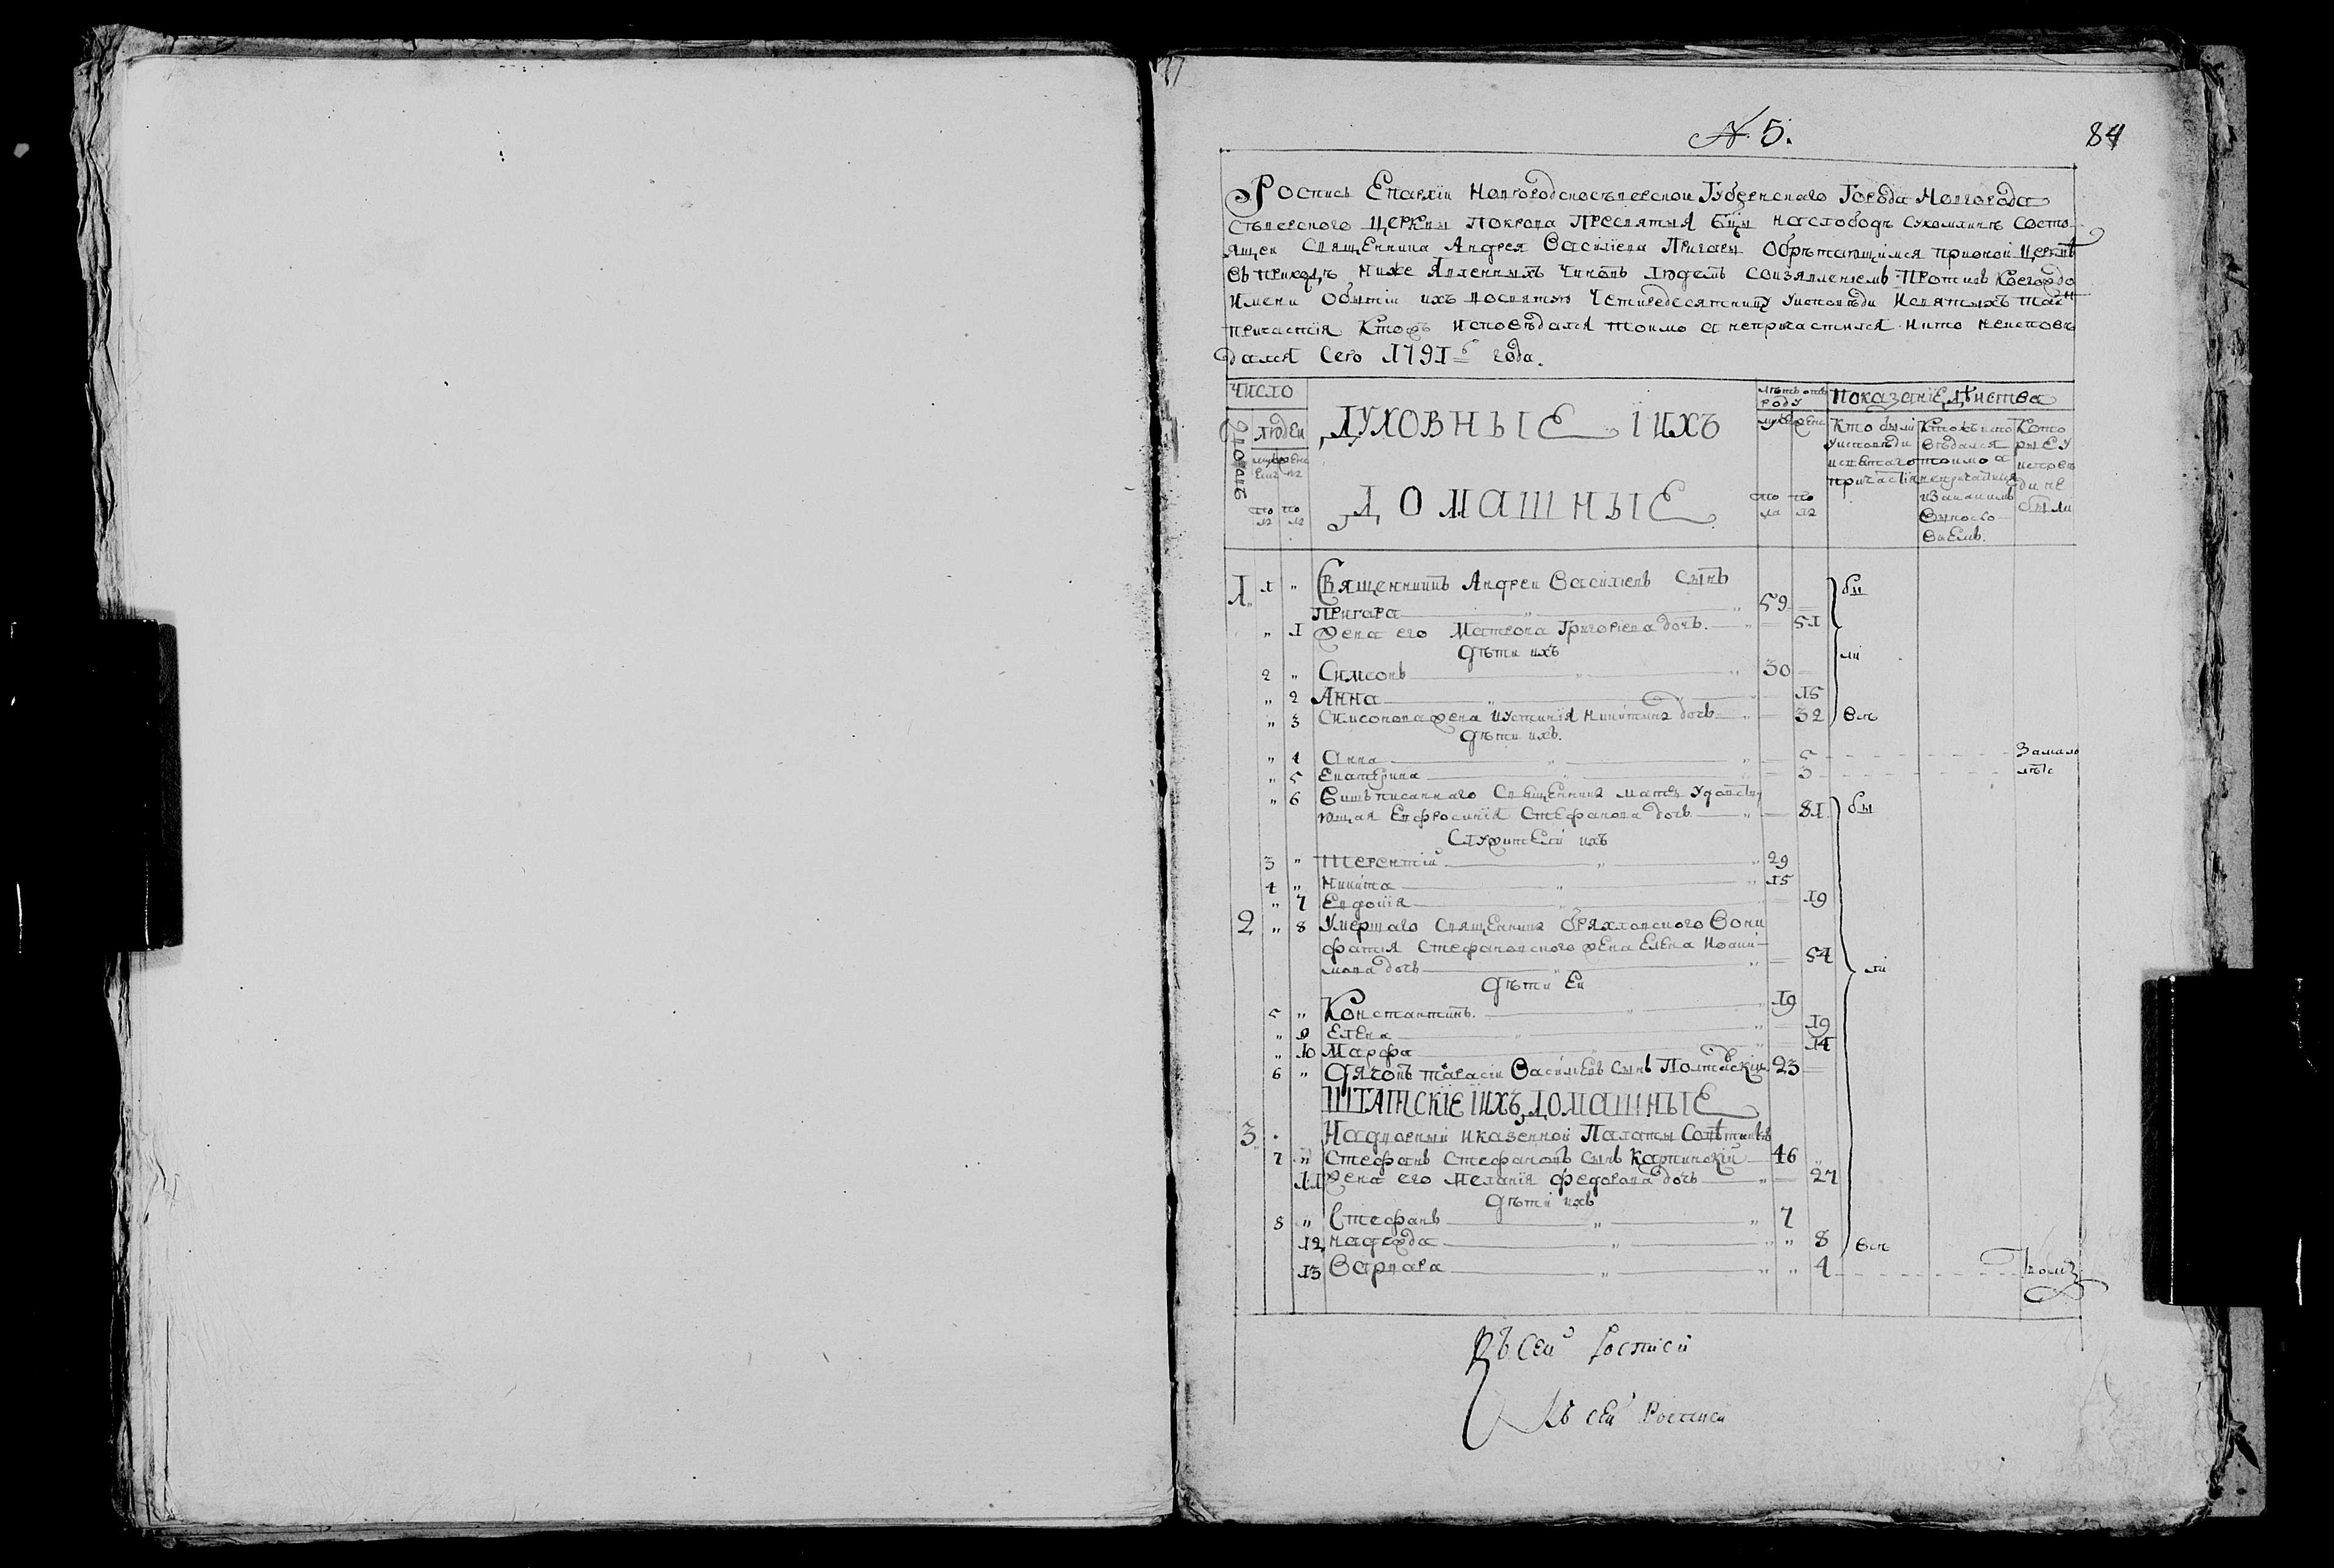 № 5.
84
Роспись Епархіи Новгородскосѣверской Губернского Города Новгорода
сѣверского церкви Покрова Пресвятыя Бцы наслободѣ сухомлинѣ состо
ящей Священника Андрея Василіева Пригары Обрѣтающимся прионой Церквѣ
въ приходѣ ниже Явленныхъ Чиновъ людемъ соизявленіемъ Противъ Коегождо
Имени Обытіи ихъ восвятую Четиредесятницу уисповѣди Исвятыхъ Тайнъ
причастія Ктожъ исповѣдался токмо а непричастился Икто неисповѣ
дался Сего 1791 года.
ЧИСЛО
Дворовъ
людей
ДУХОВНЫЕ ІИХЪ
ДОМАШНЫЕ
лѣтъ отъ роду
Показаніе дѣйства
Кто были уисповѣди исвятаго причастія
Кто исповѣдался токмо а непричастился изакакимъ Винословіемъ.
Которые уисповѣди не были
1 1 " Священникъ Андрей Василіевъ сынъ
Пригара 59
" 1 Жена его Матрона Григоріева дочь. 51
дѣти ихъ
2 " Симеонъ 30
" 2 Анна 15
" 3 Симеонова жена Иустинія Никитина дочь 32
бы
ли
всѣ
дѣти ихъ.
" 4 Анна 5 Замало
" 5 Екатерина 3 лѣтс
" 6 Вишъписанного Священника матеръ Удовству
ющая Евфросинія Стефанова дочь 81 бы
Служителѣ ихъ
3 " Терентій 29
4 " Никита 15
" 7 Евдокія 19
2 " 8 Умершаго Священника Бряхловского Вони
фатія Стефановского жена Елена Иоаки-
мова дочь 54 ли
дѣти Еи
5 " Константинъ. 19
" 9 Елена 19
" 10 Марфа 14
6 " дячокъ Тарасій Василіевъ сынъ Полтавскій 23
ШТАТСКІЕ ІИХЪ ДОМАШНЫЕ
3 Надворный иказенной Палаты Совѣтникъ
7 " Стефанъ Стефановъ сынъ Карпинскій 46
11 Жена его Меланія Федорова дочь 27
дѣти ихъ
8 " Стефанъ 7
12 надежда " 8 всѣ
13 Варвара " 4
Къ сей Росписи
Къ сей Росписи